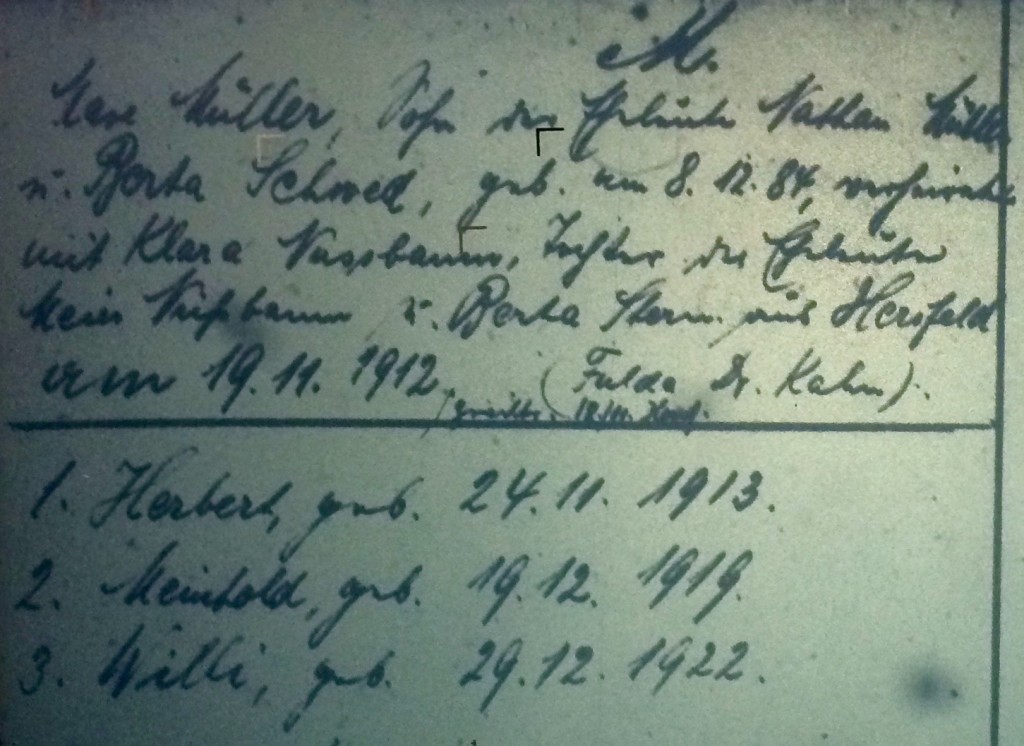 M.
Max Müller, Sohn der Eheleute Nathan Müller
u. Berta Schwed, geb. am 8. 12. 84, verheiratet
mit Klara Nussbaum, Tochter der Eheleute
Meier Nußbaum u. Berta Stern aus Hersfeld
am 19. 11. 1912. (Fulda Dr. Kahn).
1. Herbert, geb. 24. 11. 1913.
2. Meinhold, geb. 19. 12. 1919.
3. Willi, geb. 29. 12. 1922.